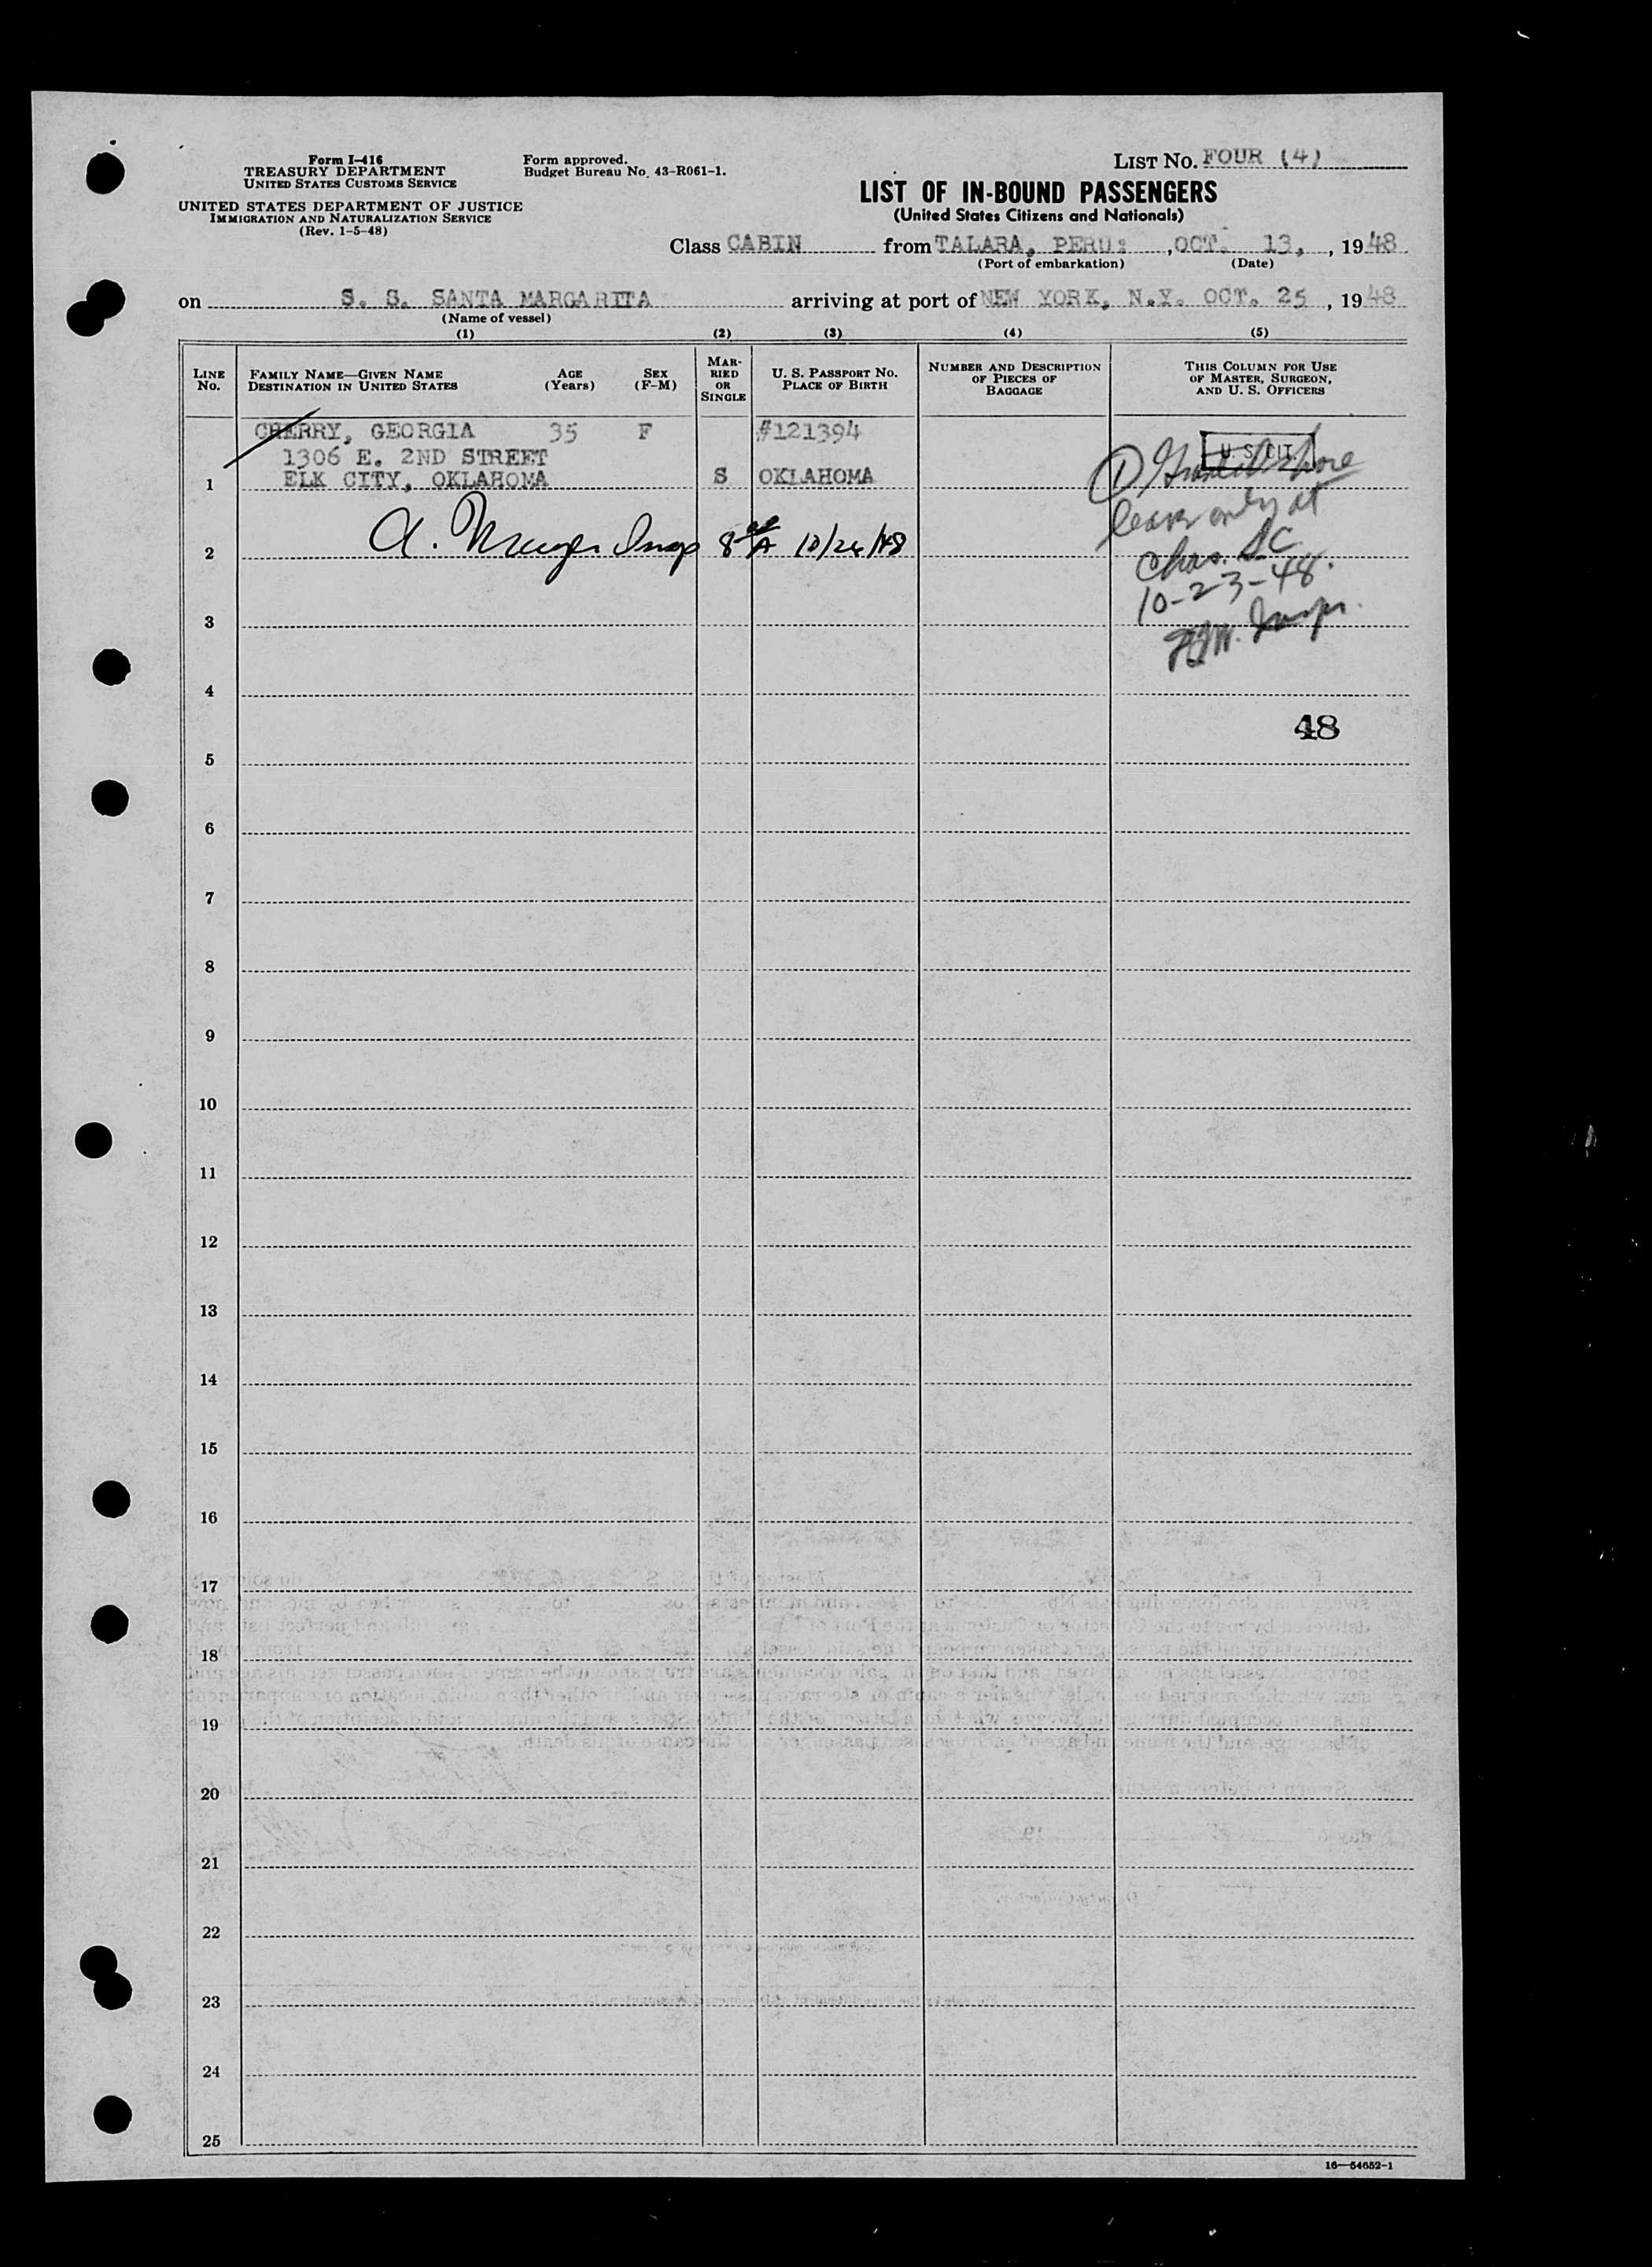 Form I-416
TREASURY DEPARTMENT
UNITED STATES CUSTOMS SERVICE
UNITED STATES DEPARTMENT OF JUSTICE
IMMIGRATION AND NATURALIZATION SERVICE
(Rev. 1-5-48)
Form approved.
Budget Bureau No. 43-R061-1.
LIST No. FOUR (4)
LIST OF IN-BOUND PASSENGERS
(United States Citizens and Nationals)
Class CABIN from TALARA, PERU: , OCT. 13, , 1948
(Port of embarkation) (Date)
on S. S. SANTA MARGARITA arriving at port of NEW YORK, N.Y. OCT. 25 , 1948
(Name of vessel)
(1) (2) (3) (4) (5)
LINE No.
FAMILY NAME—GIVEN NAME
DESTINATION IN UNITED STATES
AGE (Years)
SEX (F-M)
MARRIED OR SINGLE
U. S. PASSPORT No.
PLACE OF BIRTH
NUMBER AND DESCRIPTION
OF PIECES OF
BAGGAGE
THIS COLUMN FOR USE
OF MASTER, SURGEON,
AND U. S. OFFICERS
CHERRY, GEORGIA 35 F #121394
1306 E. 2ND STREET
1 ELK CITY, OKLAHOMA S OKLAHOMA
U. S. CIT.
Shore
leave only at
Chas. SC
10-23-48.
Insp.
2
3
4
48
5
6
7
8
9
10
11
12
13
14
15
16
17
18
19
20
21
22
23
24
25
16—54652-1